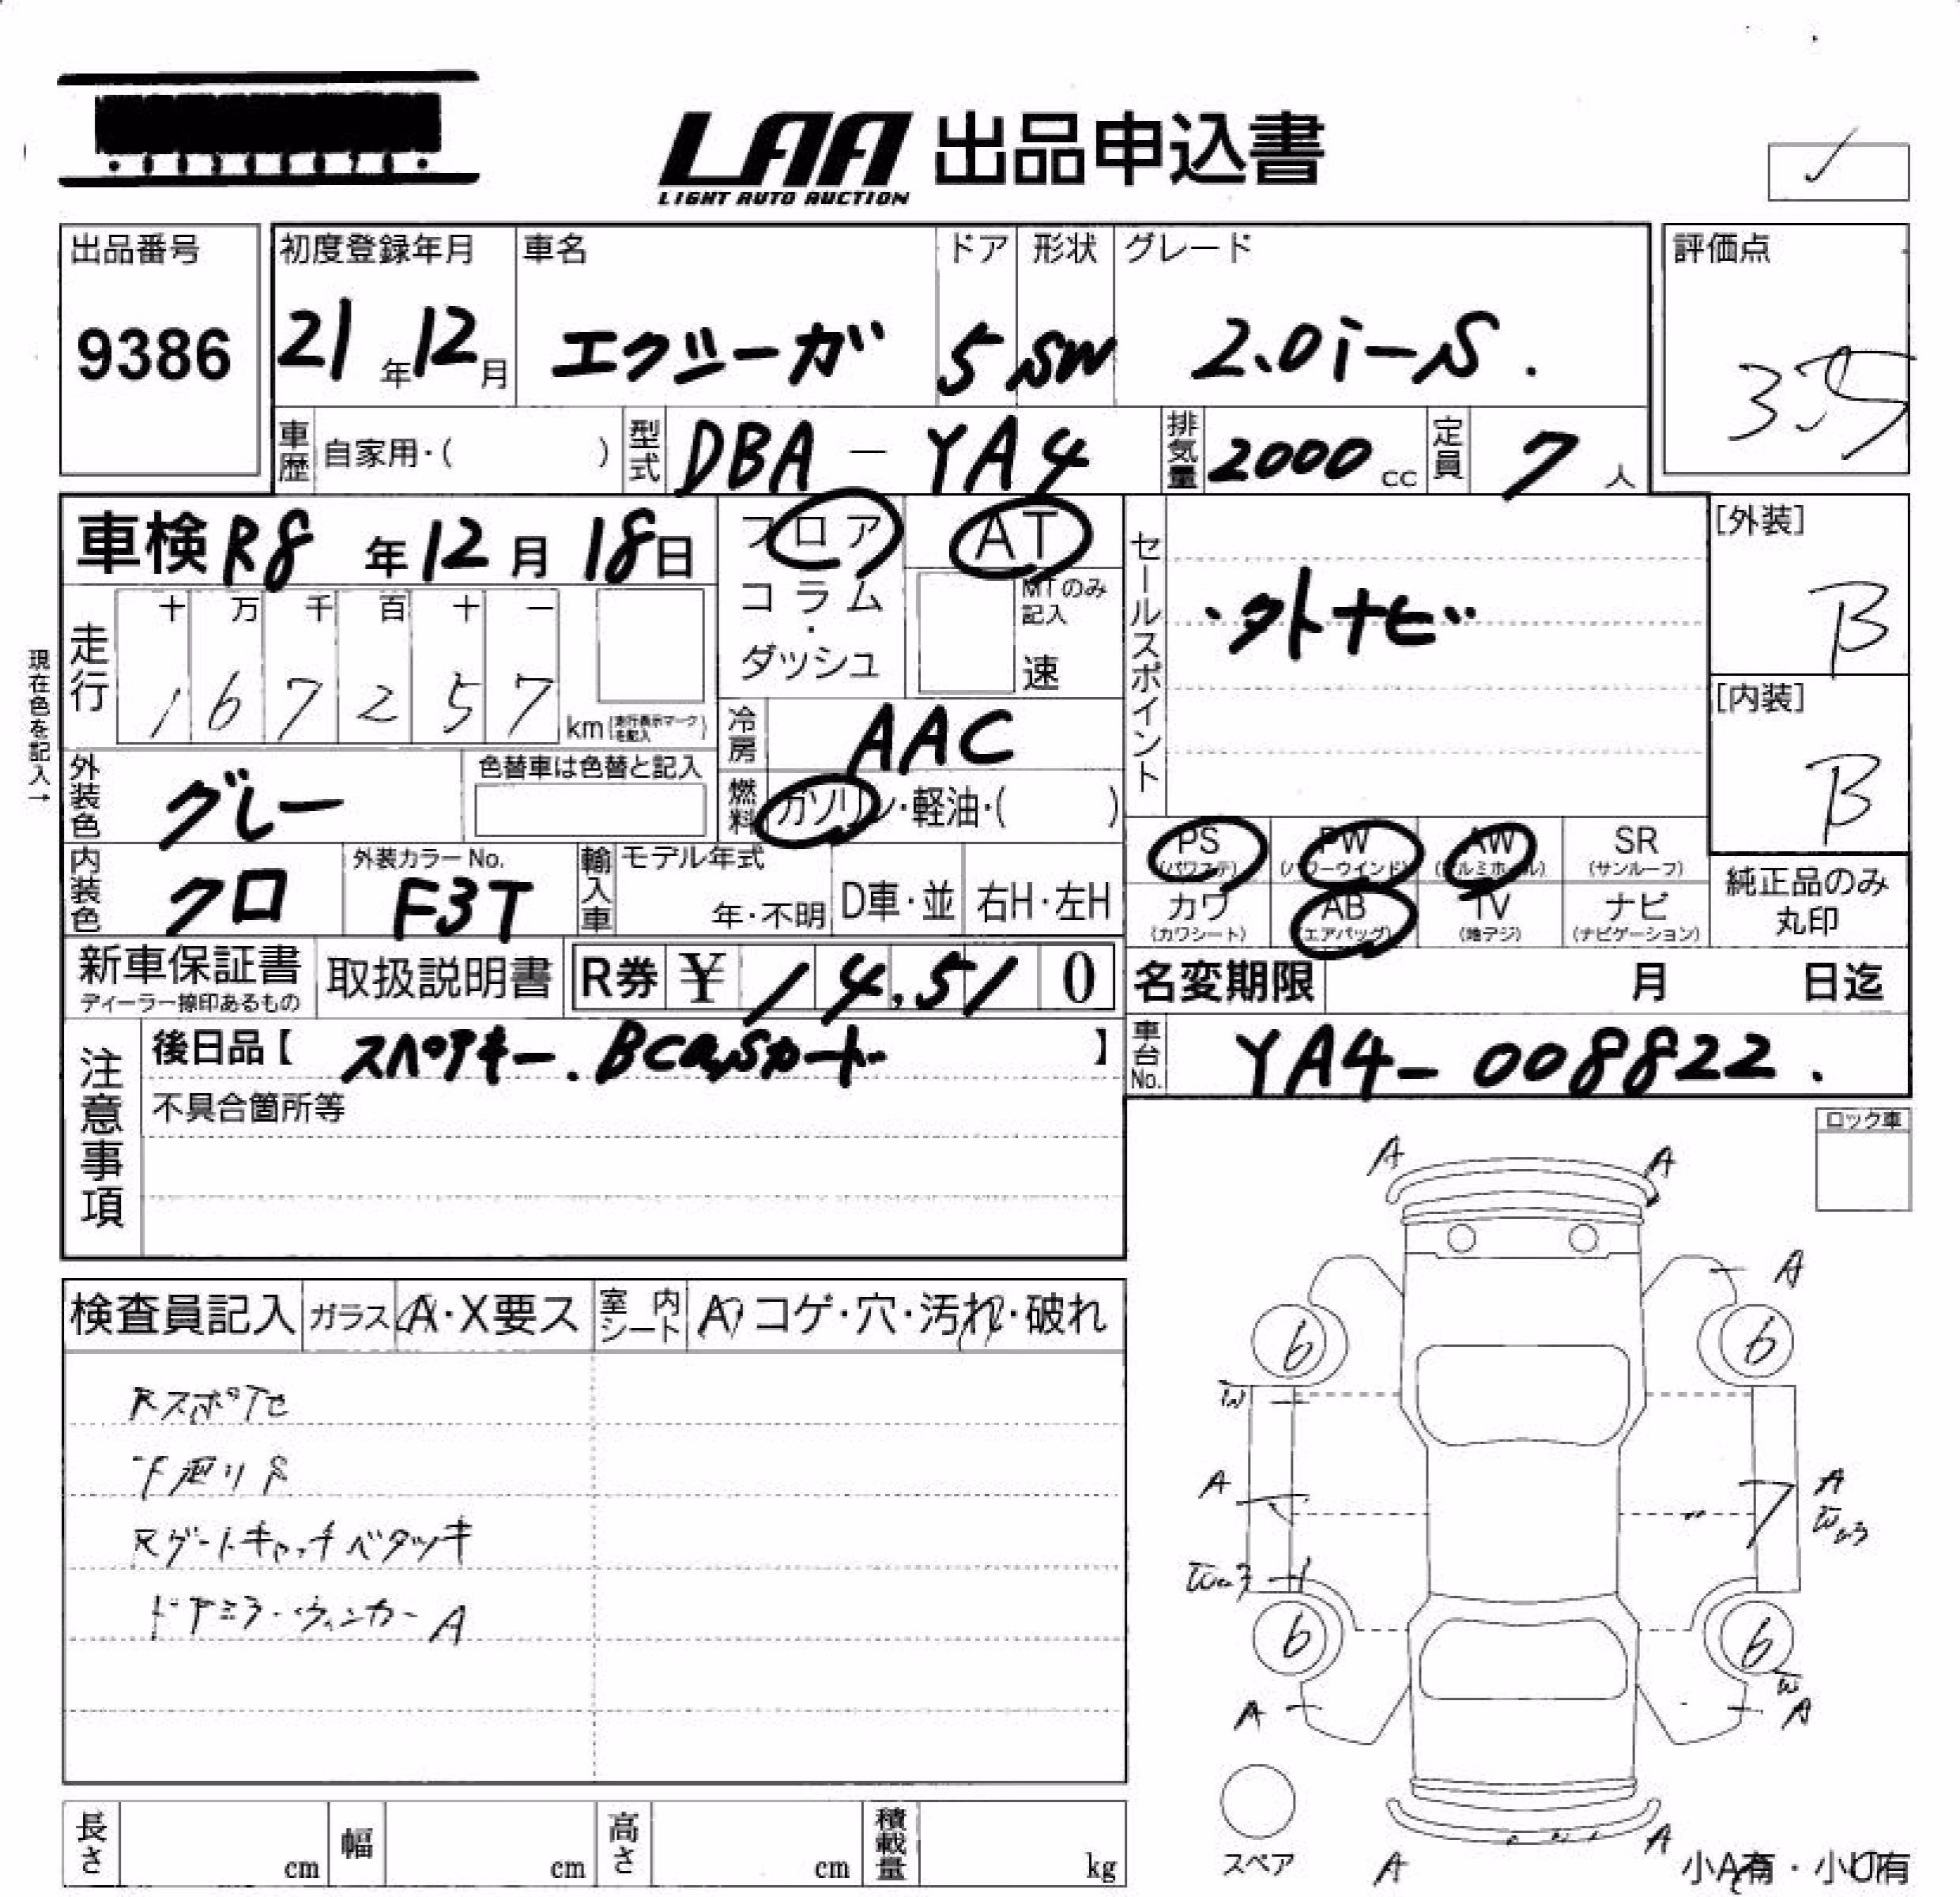 LAA 出品申込書
LIGHT AUTO AUCTION
出品番号
9386
初度登録年月
21年12月
車名
エクシーガ
ドア
5
形状
SW
グレード
2.0i-S.
評価点
3.5
車歴 自家用・( )
型式 DBA-YA4
排気量 2000cc
定員 7人
車検 R8年12月18日
フロア
コラム・ダッシュ
AT
MTのみ記入
速
セールスポイント
・外ナビ
[外装]
B
[内装]
B
現在色を記入→
走行
十 万 千 百 十 一
1 6 7 2 5 7
km (走行表示マークを記入)
冷房 AAC
外装色 グレー
色替車は色替と記入
燃料 ガソリン・軽油・( )
内装色 クロ
外装カラーNo.
F3T
輸入車
モデル年式
年・不明
D車・並
右H・左H
PS (パワステ)
PW (パワーウインド)
AW (アルミホイール)
SR (サンルーフ)
カワ (カワシート)
AB (エアバッグ)
TV (地デジ)
ナビ (ナビゲーション)
純正品のみ丸印
新車保証書
ディーラー捺印あるもの
取扱説明書
R券 ¥ 14,510
名変期限 月 日迄
車台No. YA4-008822.
注意事項
後日品【 スペアキー.BCasカード 】
不具合箇所等
ロック車
検査員記入
ガラス A・X要ス
室内シート A・コゲ・穴・汚れ・破れ
Rスポアセ
下廻りS
Rゲートキャッチベタツキ
ドアミラーウィンカーA
A A
A
6 6
W
A A
W
6 6
W
A A
A A
スペア
小A有・小U有
長さ cm
幅 cm
高さ cm
積載量 kg